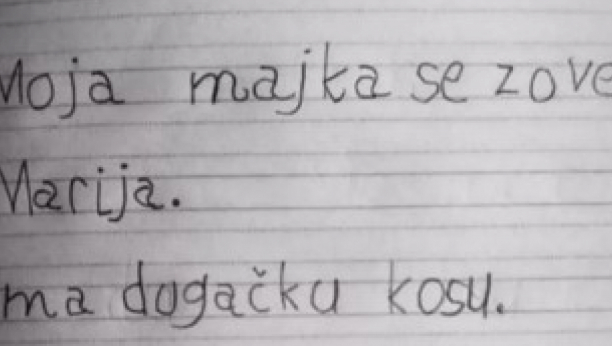 Moja majka se zove
Marija.
ma dugačku kosu.